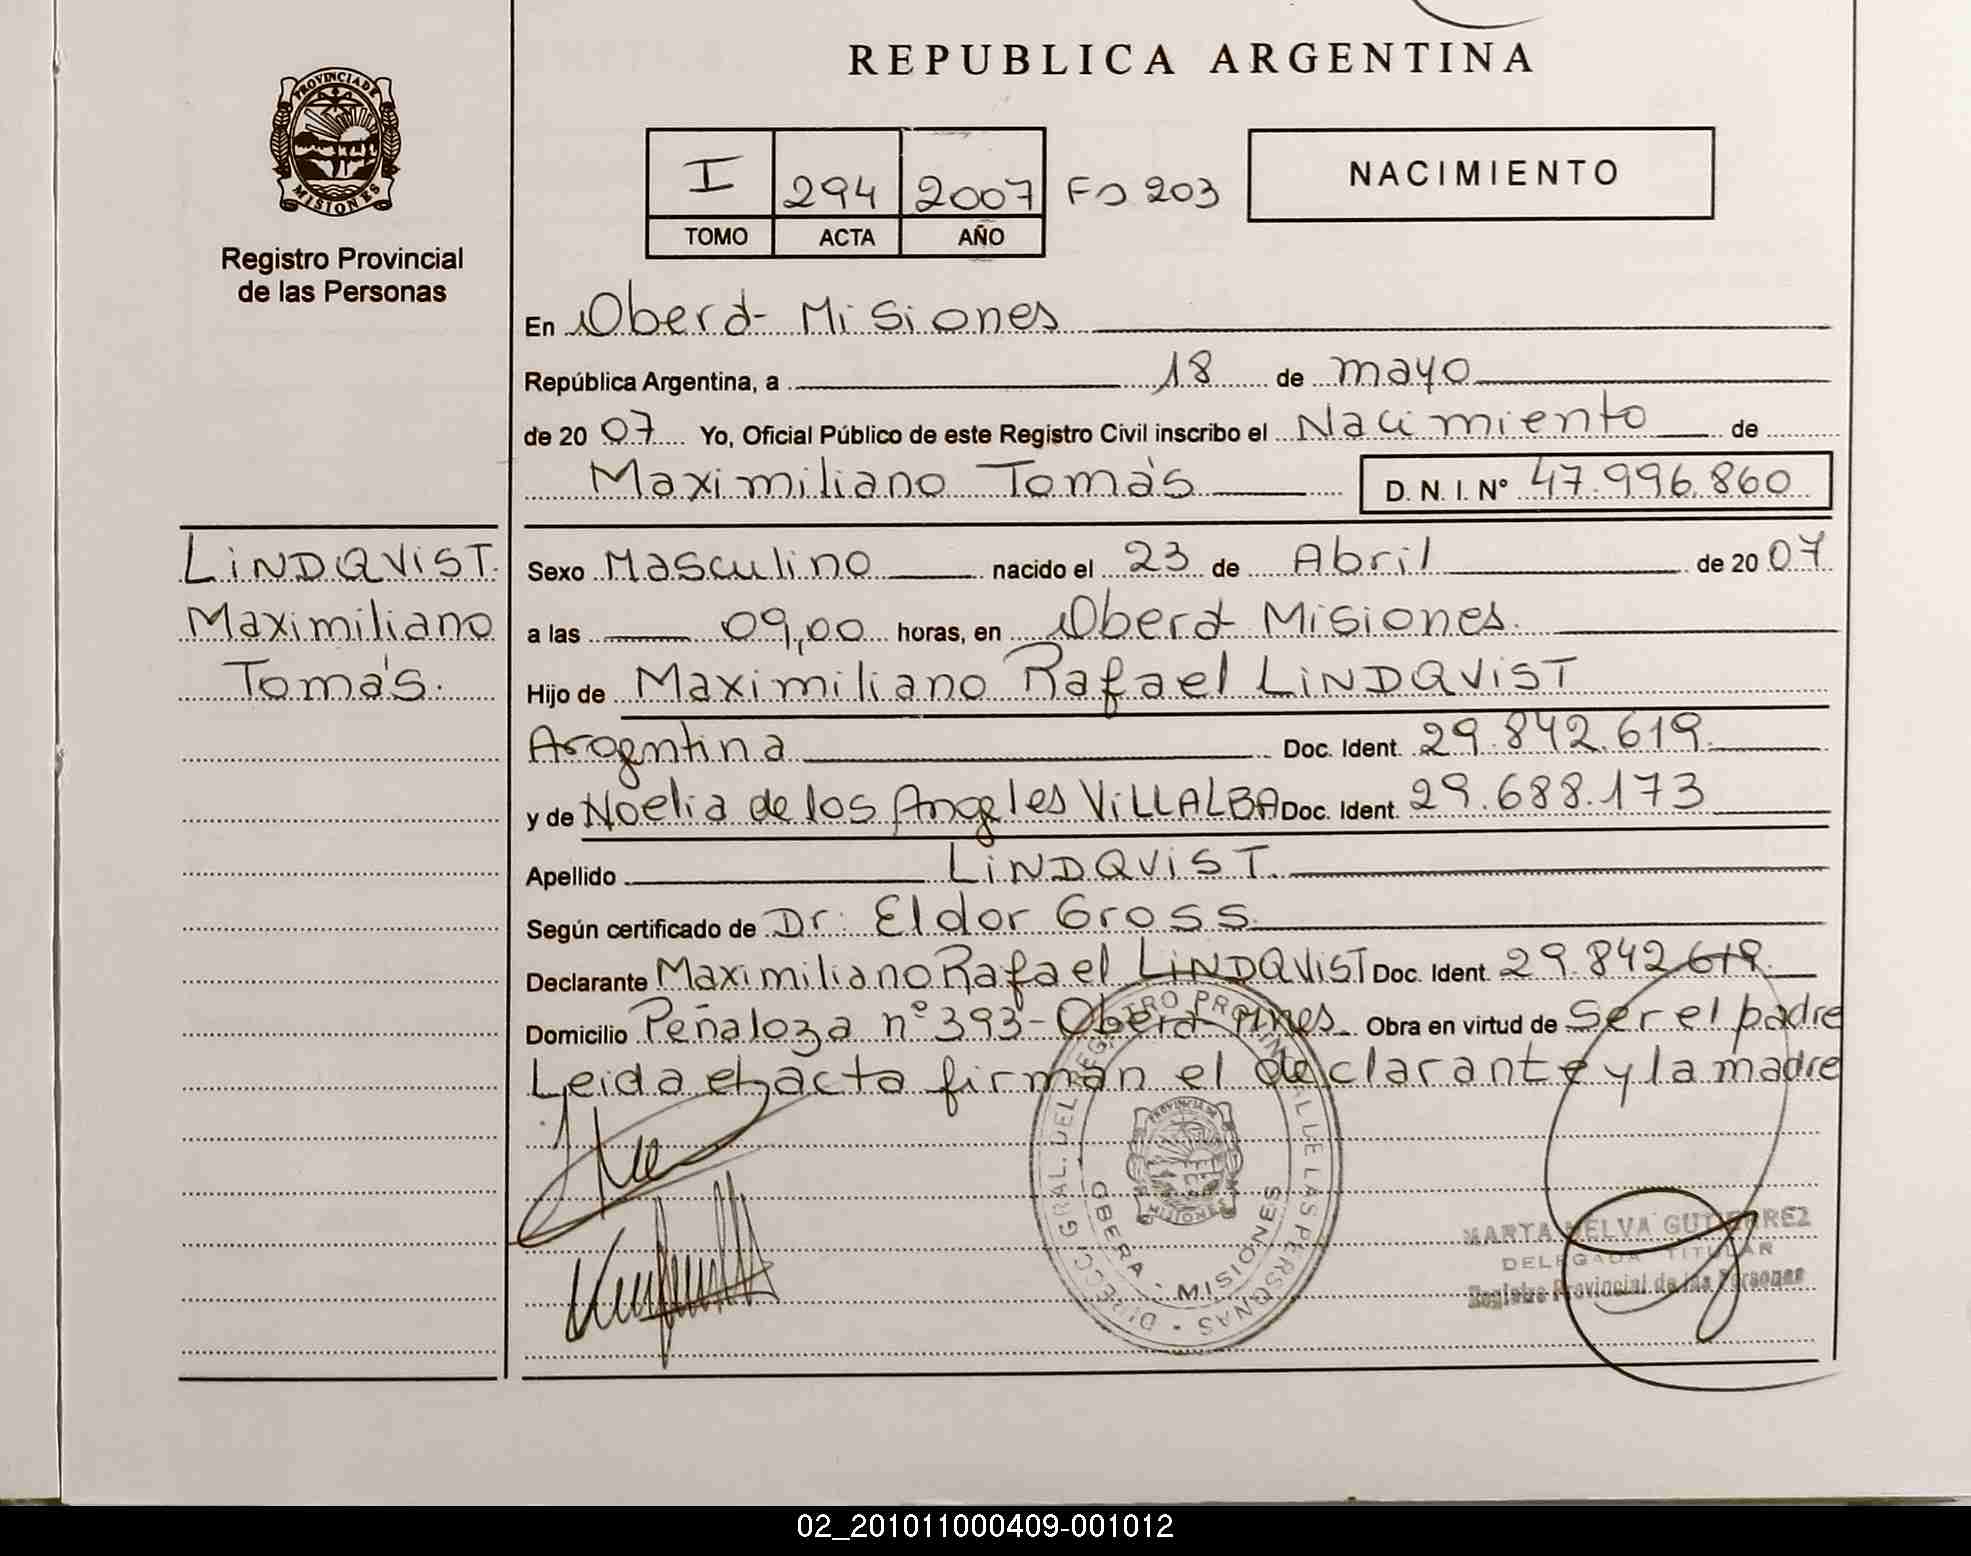 REPUBLICA ARGENTINA
PROVINCIA DE
MISIONES
Registro Provincial
de las Personas
I 294 2007 Fº 203
TOMO ACTA AÑO
NACIMIENTO
En Oberá - Misiones
República Argentina, a 18 de mayo
de 20 07 Yo, Oficial Público de este Registro Civil inscribo el Nacimiento de
Maximiliano Tomás D. N. I. Nº 47.996.860
LINDQVIST.
Maximiliano
Tomás.
Sexo Masculino nacido el 23 de Abril de 20 07
a las 09,00 horas, en Oberá Misiones.
Hijo de Maximiliano Rafael LINDQVIST
Argentina Doc. Ident. 29.842.619.
y de Noelia de los Angeles VILLALBA Doc. Ident. 29.688.173
Apellido LINDQVIST.
Según certificado de Dr: Eldor Gross
Declarante Maximiliano Rafael LINDQVIST Doc. Ident. 29.842.619.
Domicilio Peñaloza nº 393 - Oberá Mnes Obra en virtud de Ser el padre
Leida el acta firman el declarante y la madre
DIRECC. GRAL. DEL REGISTRO PROVINCIAL DE LAS PERSONAS
OBERA - MISIONES
PROVINCIA DE
MISIONES
MARTA NELVA GUTIERREZ
DELEGADA TITULAR
Registro Provincial de las Personas
02_201011000409-001012